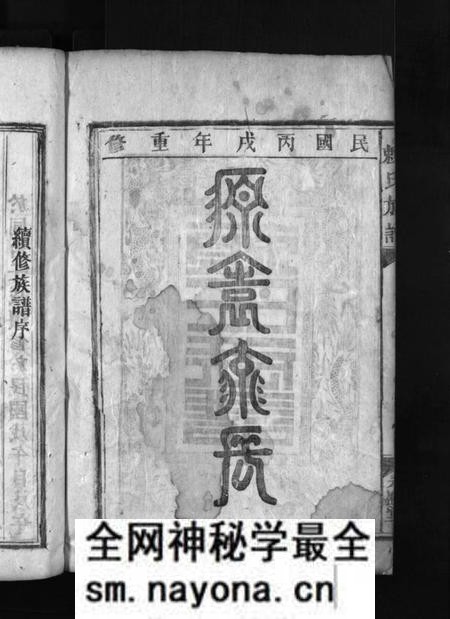 民國丙戌年重修
賴氏族譜
源遠流長
續修族譜序
全网神秘学最全
sm.nayona.cn